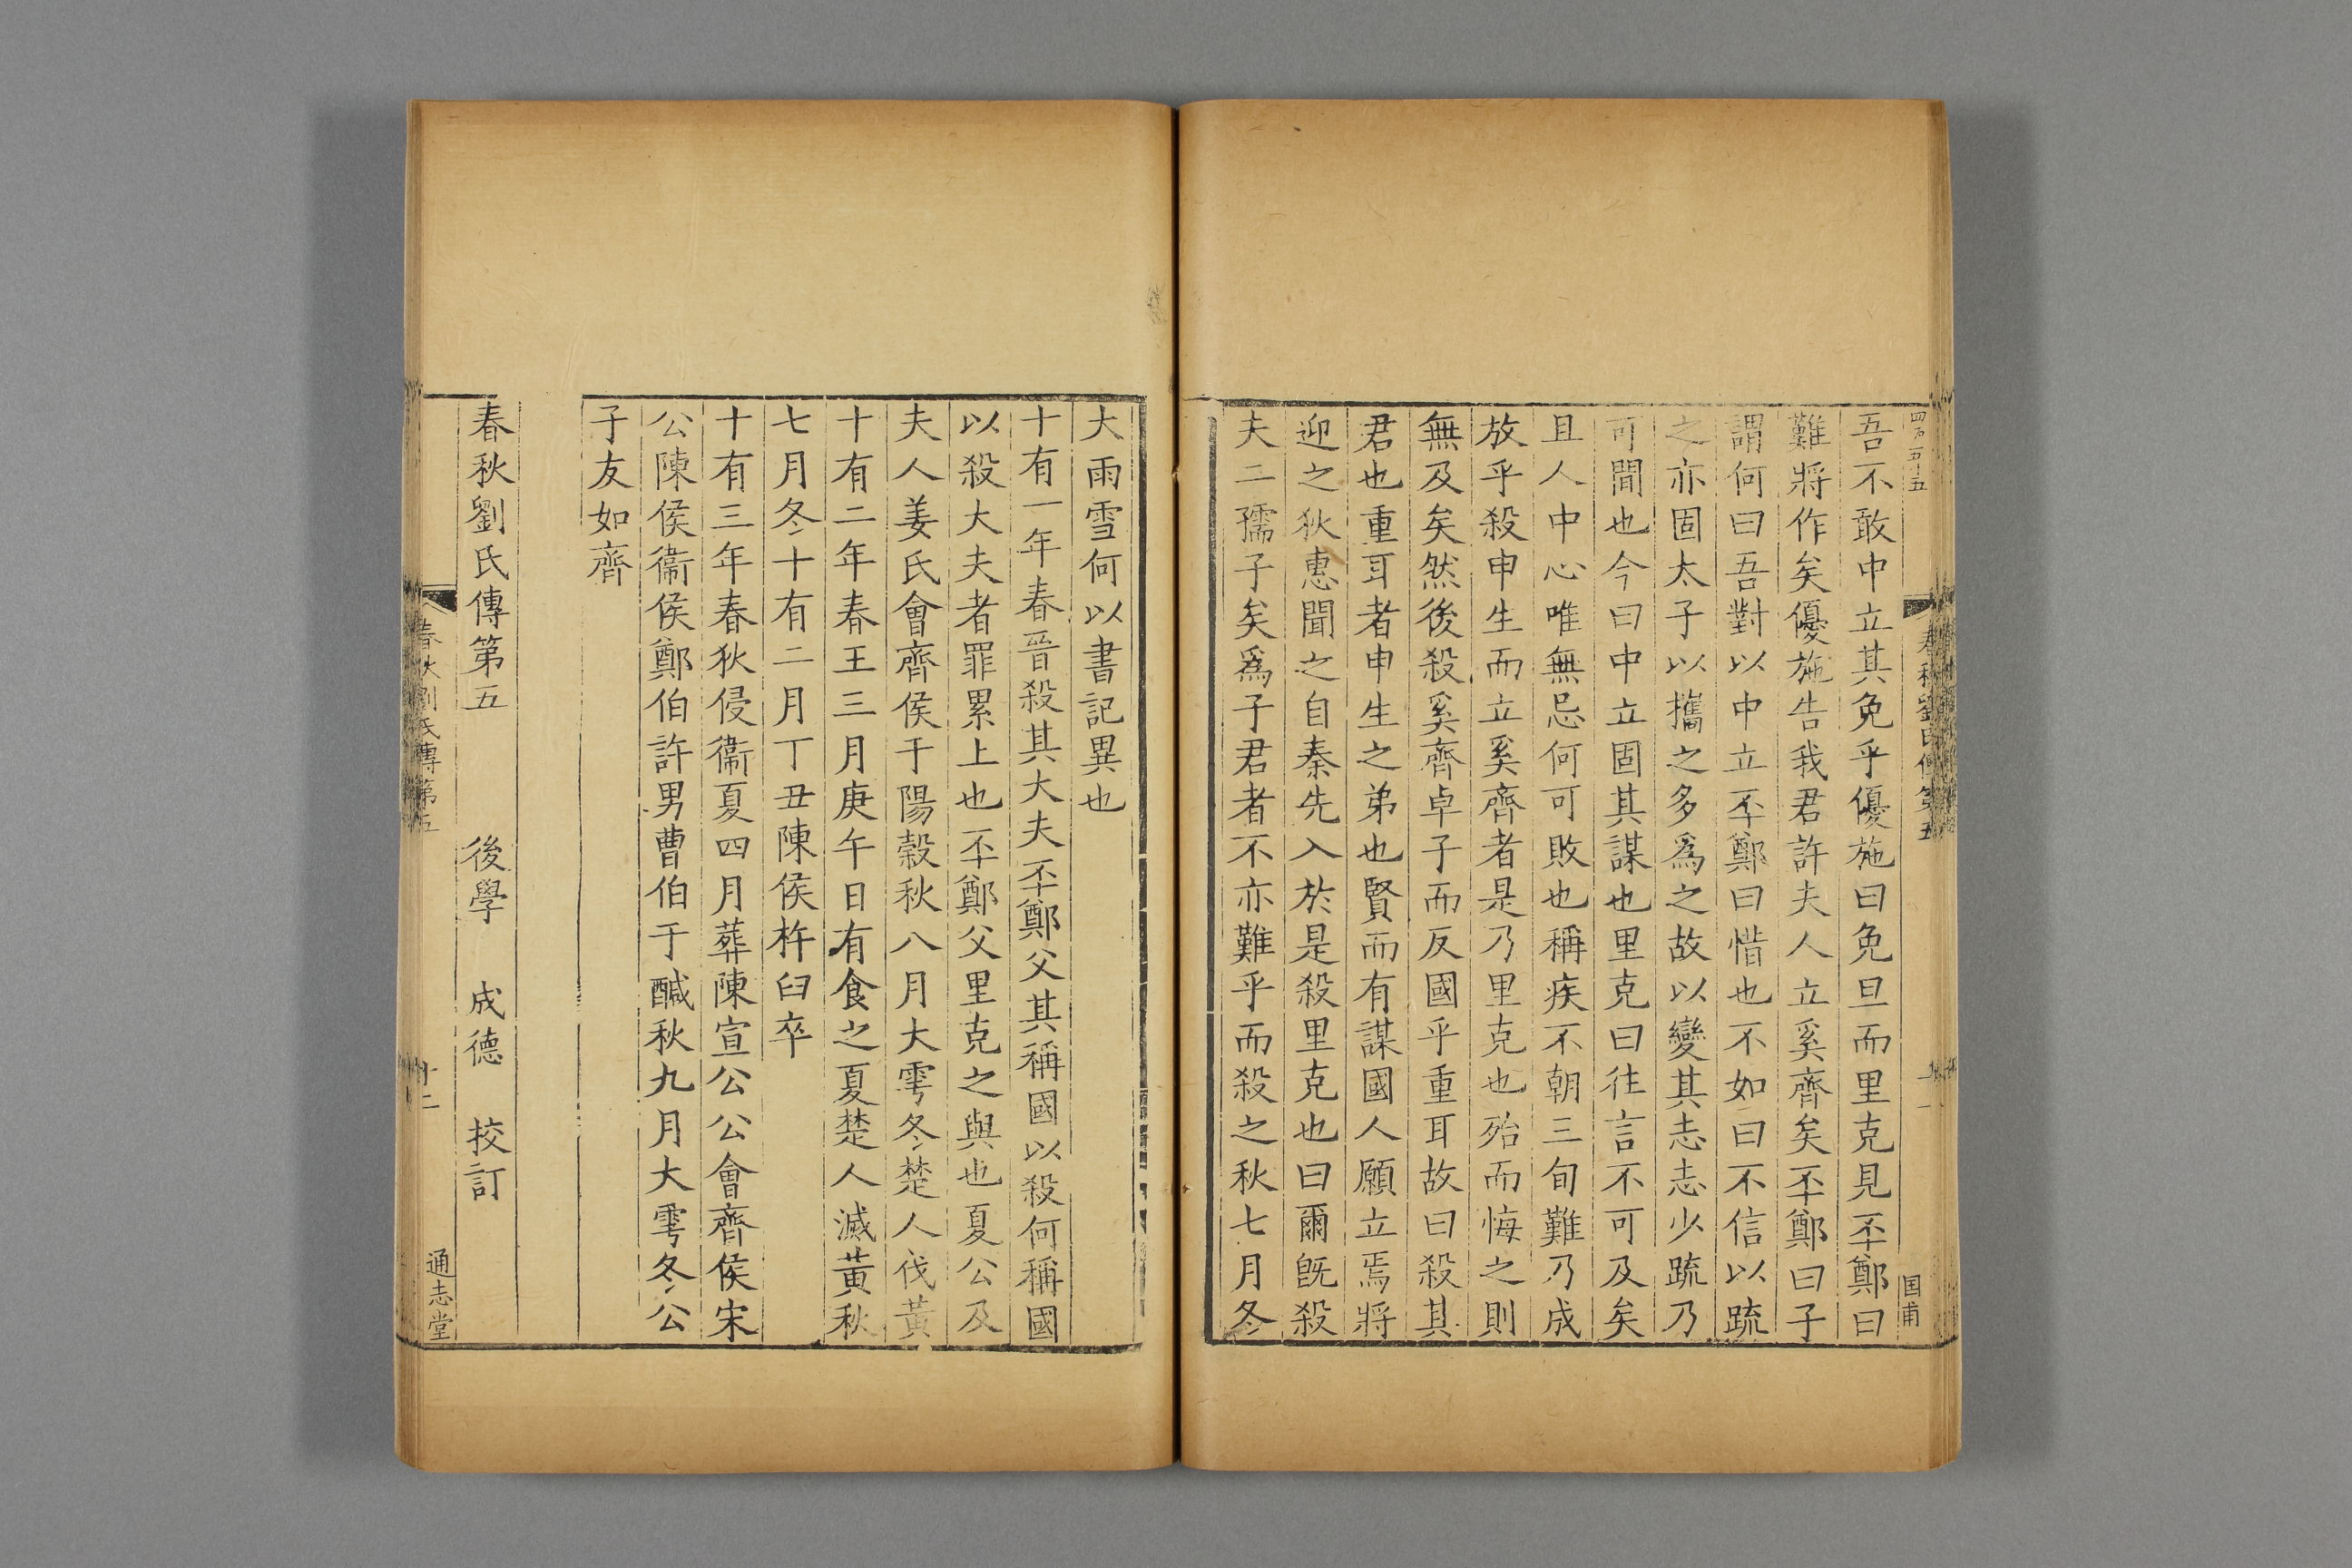 四百五十五
春秋劉氏傳第五
国甫
吾不敢中立其免乎優施曰免旦而里克見丕鄭曰
難將作矣優施告我君許夫人立奚齊矣丕鄭曰子
謂何曰吾對以中立丕鄭曰惜也不如曰不信以疏
之亦固太子以攜之多爲之故以變其志志少疏乃
可間也今曰中立固其謀也里克曰往言不可及矣
且人中心唯無忌何可敗也稱疾不朝三旬難乃成
放乎殺申生而立奚齊者是乃里克也殆而悔之則
無及矣然後殺奚齊卓子而反國乎重耳故曰殺其
君也重耳者申生之弟也賢而有謀國人願立焉將
迎之狄惠聞之自秦先入於是殺里克也曰爾旣殺
夫二孺子矣爲子君者不亦難乎而殺之秋七月冬
大雨雪何以書記異也
十有一年春晉殺其大夫丕鄭父其稱國以殺何稱國
以殺大夫者罪累上也丕鄭父里克之與也夏公及
夫人姜氏會齊侯于陽穀秋八月大雩冬楚人伐黃
十有二年春王三月庚午日有食之夏楚人滅黃秋
七月冬十有二月丁丑陳侯杵臼卒
十有三年春狄侵衞夏四月葬陳宣公公會齊侯宋
公陳侯衞侯鄭伯許男曹伯于醎秋九月大雩冬公
子友如齊
春秋劉氏傳第五 後學 成德 挍訂
春秋劉氏傳第五
十二
通志堂